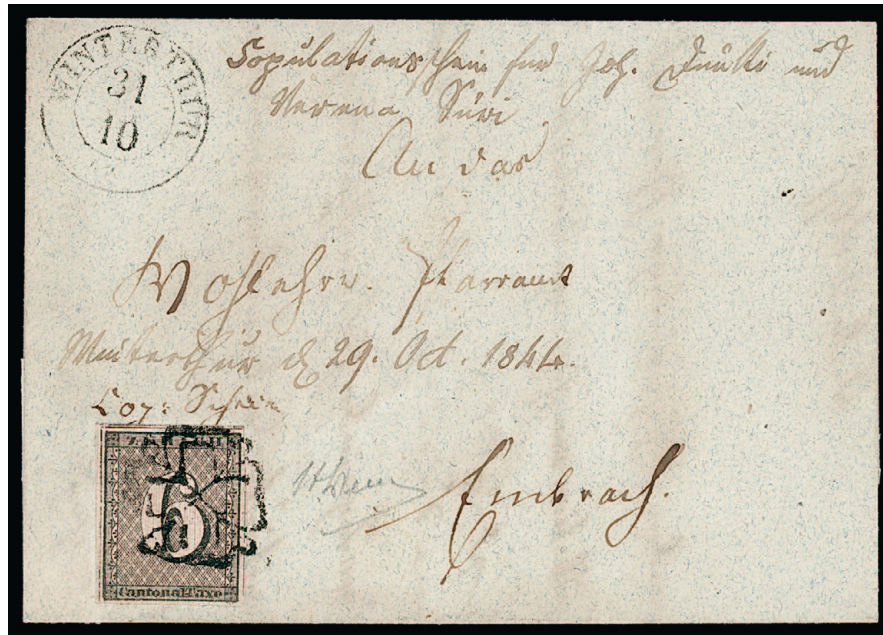 WINTERTHUR
31
10
Copulationsschein für Joh. und
Verena
An das
Wohlehrw. Pfarramt
Winterthur d. 29. Oct. 1844.
Cop: Schein
ZÜRICH
6
Cantonal-Taxe
Embrach.